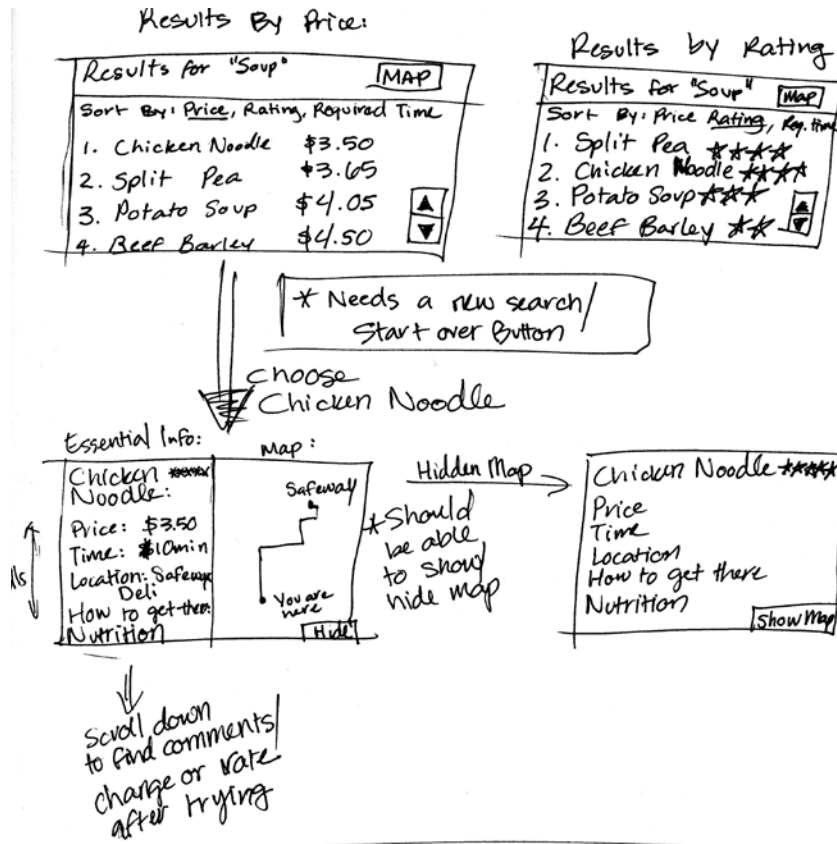 Results By Price:
Results for "Soup" MAP
Sort By: Price, Rating, Required Time
1. Chicken Noodle $3.50
2. Split Pea $3.65
3. Potato Soup $4.05
4. Beef Barley $4.50
Results by Rating
Results for "Soup" Map
Sort By: Price Rating, Req. time
1. Split Pea ★★★★
2. Chicken Noodle ★★★★
3. Potato Soup ★★★
4. Beef Barley ★★
* Needs a new search/
Start over Button
choose
Chicken Noodle
Essential Info:
Chicken ★★★★
Noodle:
Price: $3.50
Time: 10min
Location: Safeway
Deli
How to get there:
Nutrition
Map:
Safeway
You are
here
Hide
* Should
be able
to show
hide map
Hidden Map
Chicken Noodle ★★★★
Price
Time
Location
How to get there
Nutrition
Show Map
Scroll down
to find comments/
change or rate
after trying